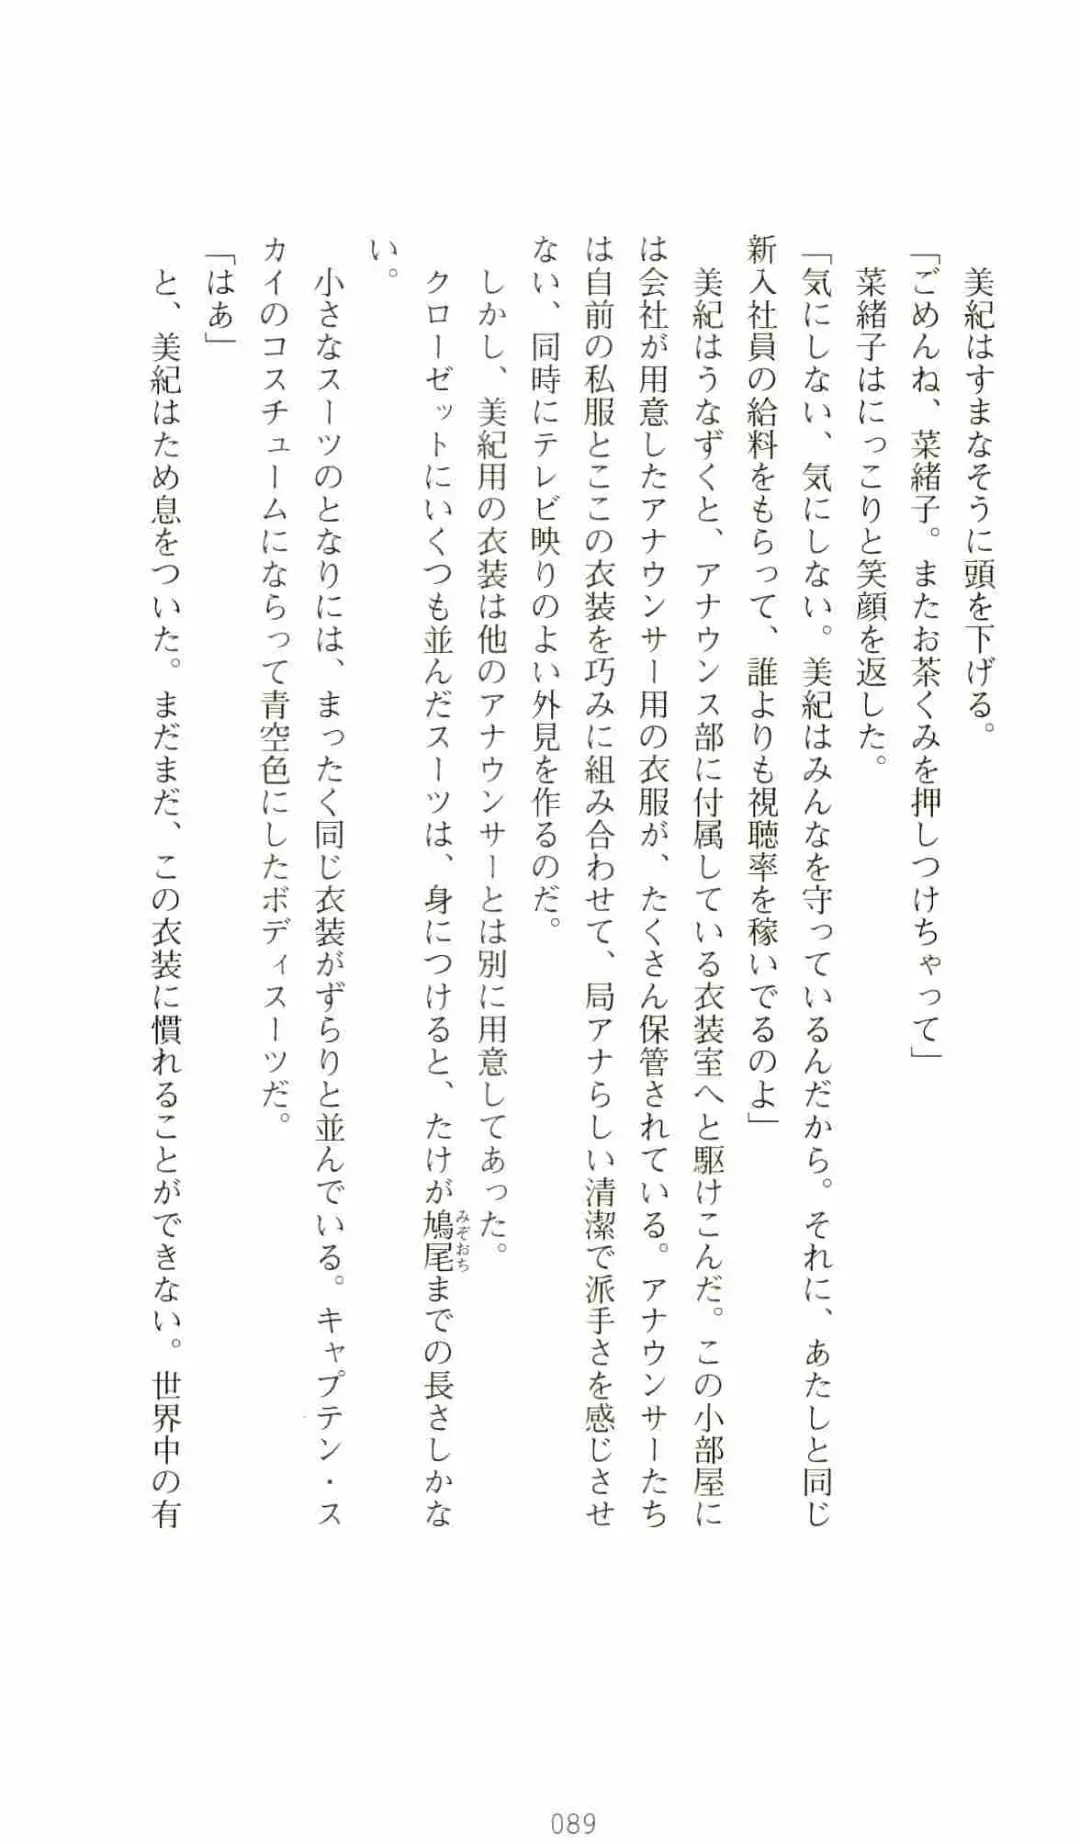 美紀はすまなそうに頭を下げる。
「ごめんね、菜緒子。またお茶くみを押しつけちゃって」
　菜緒子はにっこりと笑顔を返した。
「気にしない、気にしない。美紀はみんなを守っているんだから。それに、あたしと同じ
新入社員の給料をもらって、誰よりも視聴率を稼いでるのよ」
　美紀はうなずくと、アナウンス部に付属している衣装室へと駆けこんだ。この小部屋に
は会社が用意したアナウンサー用の衣服が、たくさん保管されている。アナウンサーたち
は自前の私服とここの衣装を巧みに組み合わせて、局アナらしい清潔で派手さを感じさせ
ない、同時にテレビ映りのよい外見を作るのだ。
　しかし、美紀用の衣装は他のアナウンサーとは別に用意してあった。
　クローゼットにいくつも並んだスーツは、身につけると、たけが鳩尾までの長さしかな
みぞおち
い。
　小さなスーツのとなりには、まったく同じ衣装がずらりと並んでいる。キャプテン・ス
カイのコスチュームにならって青空色にしたボディスーツだ。
「はあ」
　と、美紀はため息をついた。まだまだ、この衣装に慣れることができない。世界中の有
089